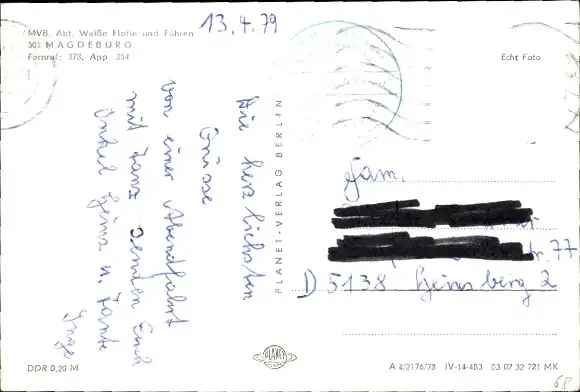 MVB, Abt. Weiße Flotte und Führen
301 MAGDEBURG
Fernruf: 378, App 354
13.4.79
Echt Foto
Die herzlichsten
Grüsse
von einer Abendfahrt
mit Tanz senden Euch
Onkel Heinz u. Tante
Inge
PLANET-VERLAG BERLIN
Fam.
str. 77
D 5138 Heinsberg 2
DDR 0,20 M
PLANET
A 4/2176/78 IV-14-483 03 07 32 721 MK
68